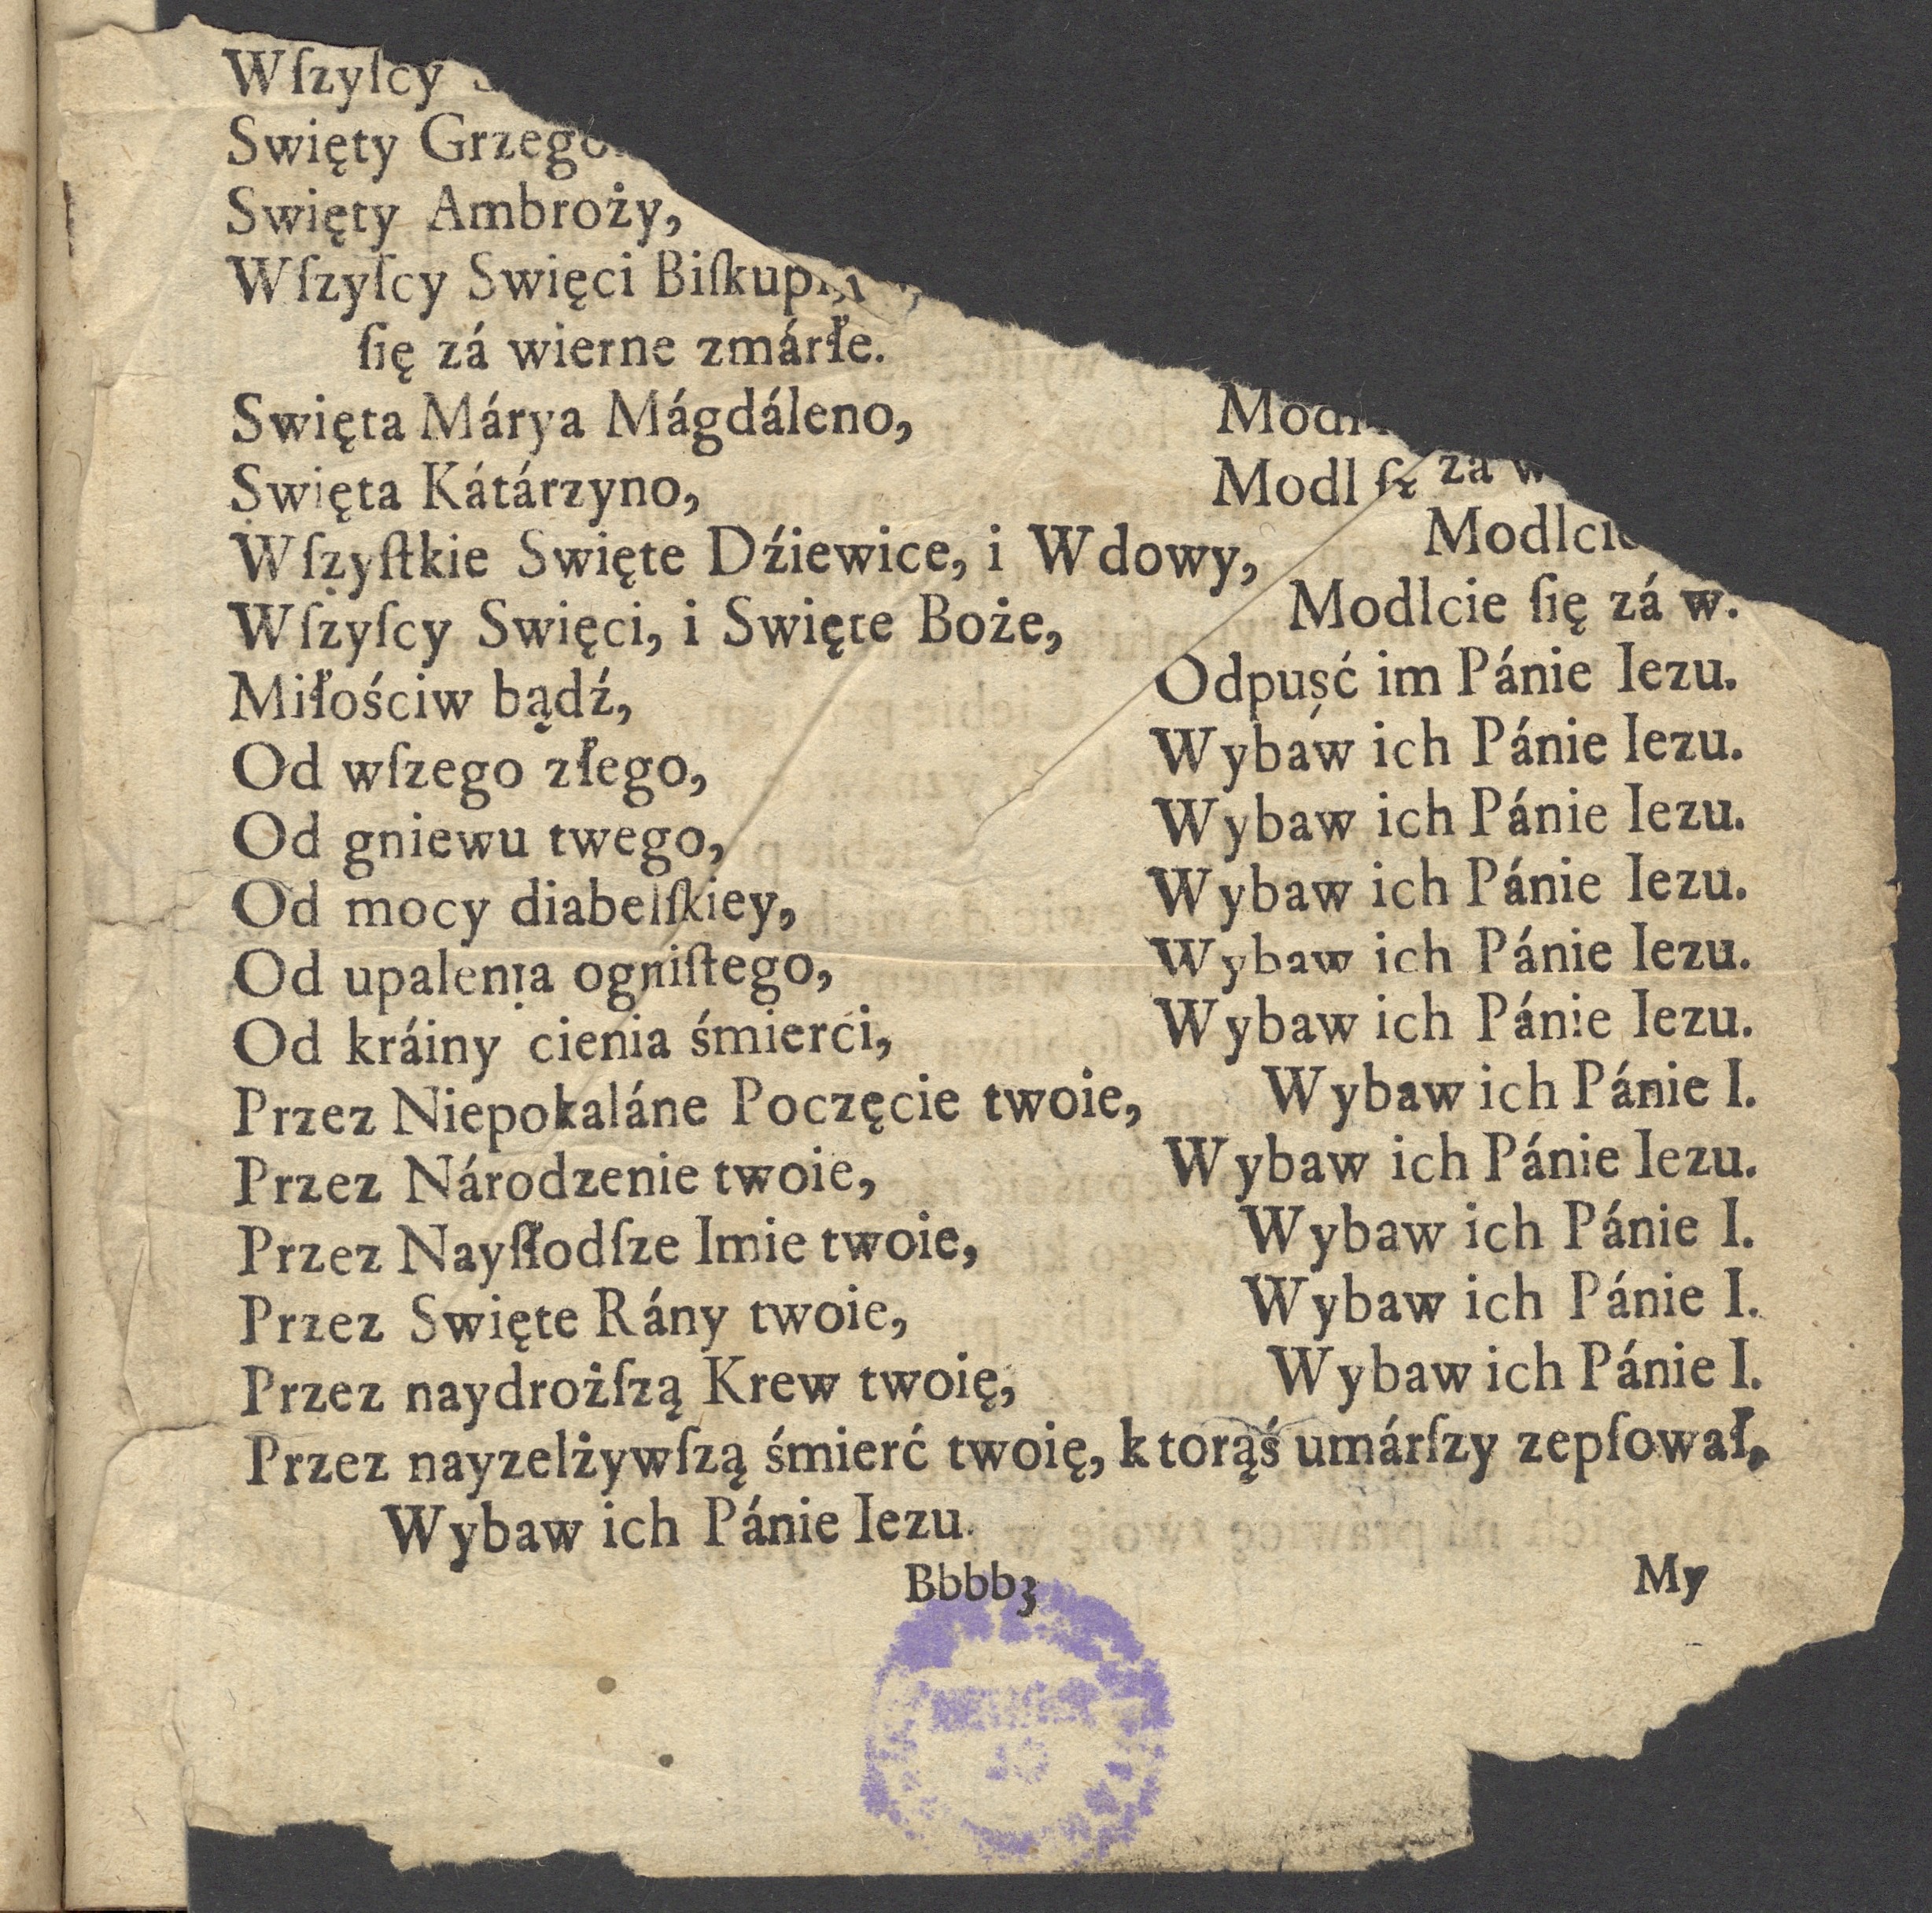 Wſzyſcy
Swięty
Swięty Ambroży,
Wſzyſcy Swięci
ſię zá wierne zmárłe.
Swięta Márya Mágdáleno,
Swięta Kátárzyno, Modl ſię zá
Wſzyſtkie Swięte Dźiewice, i Wdowy,
Wſzyſcy Swięci, i Swięte Boże, Modlcie ſię zá w.
Miłośćiw bądź, Odpuść im Pánie Iezu.
Od wſzego złego, Wybaw ich Pánie Iezu.
Od gniewu twego, Wybaw ich Pánie Iezu.
Od mocy diabelſkiey, Wybaw ich Pánie Iezu.
Od upalenia ogniſtego, Wybaw ich Pánie Iezu.
Od kráiny cienia śmierći, Wybaw ich Pánie Iezu.
Przez Niepokaláne Poczęcie twoie, Wybaw ich Pánie I.
Przez Národzenie twoie, Wybaw ich Pánie Iezu.
Przez Nayſłodſze Imie twoie, Wybaw ich Pánie I.
Przez Swięte Rány twoie, Wybaw ich Pánie I.
Przez naydrożſzą Krew twoię, Wybaw ich Pánie I.
Przez nayzelżywſzą śmierć twoię, ktorąś umárſzy zepſował,
Wybaw ich Pánie Iezu.
Bbbb3 My